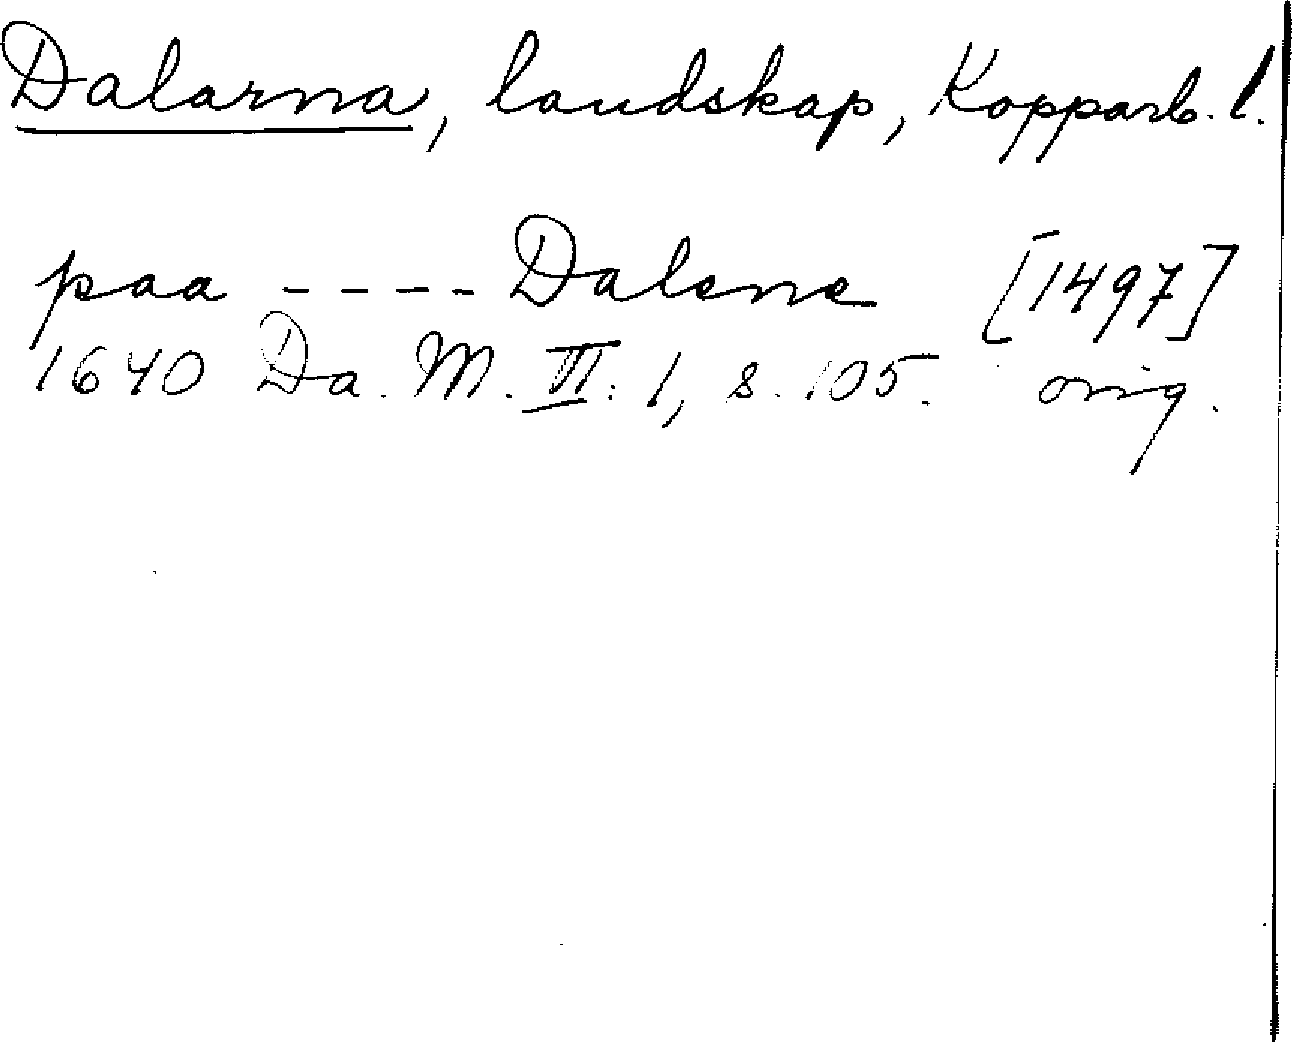 Dalarna, landskap, Kopparb. l.
paa - - - - Dalene [1497]
1640 Da. M. II: 1, s. 105. orig.